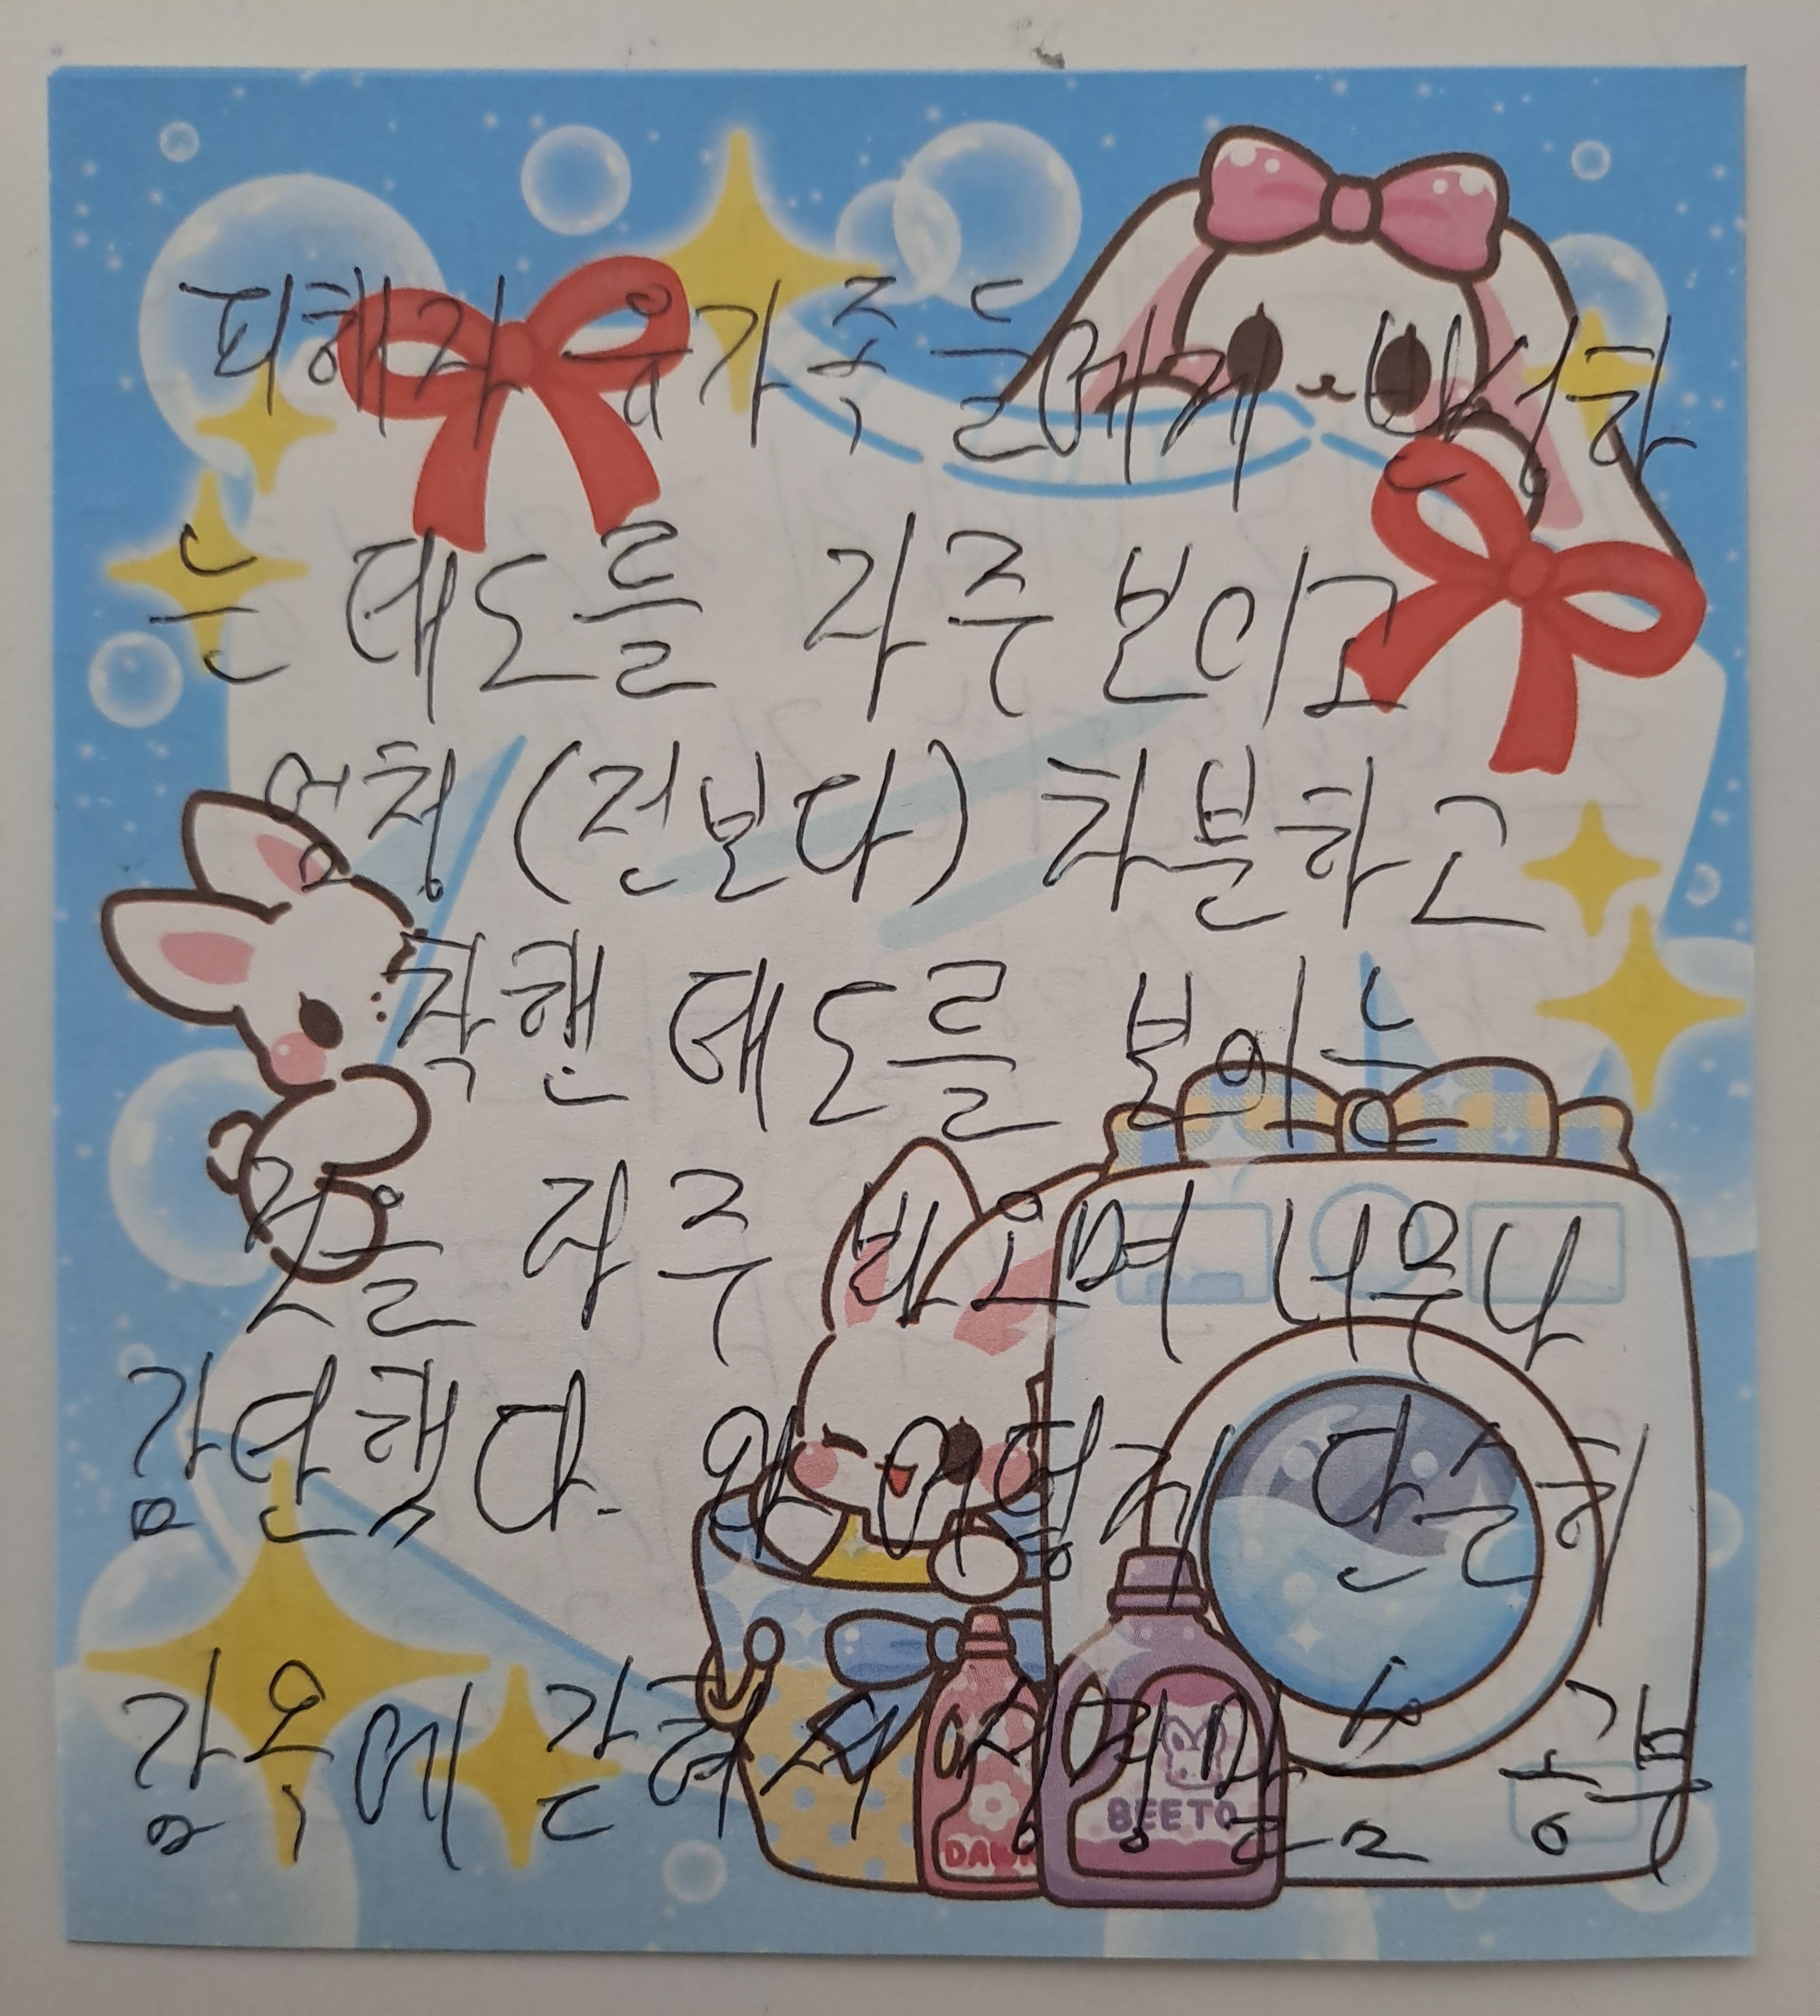 피해자 유가족들에게 반성하
는 태도를 자주 보이고
엄청 (전보다) 차분하고
착핸 태도를 보이는
것을 자주 봐오며 너무나
감탄했다. 왜 이렇게 단순히
감옥에 갇혀서 생명만
DAWN
BEETO